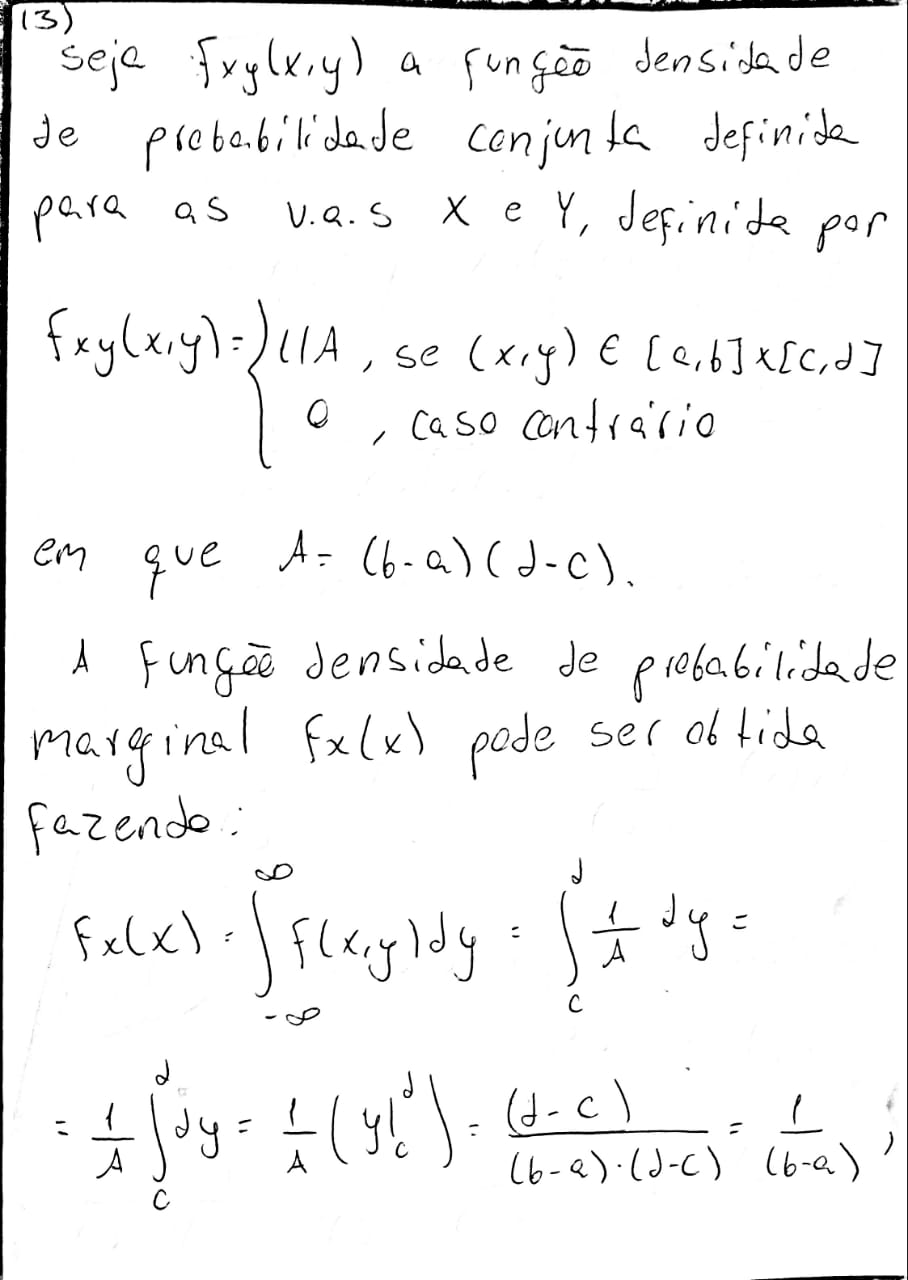 13)
seja fxy(x,y) a função densidade
de probabilidade conjunta definida
para as v.a.s X e Y, definida por
fxy(x,y) = { 1/A , se (x,y) ∈ [a,b]x[c,d]
0 , caso contrário
em que A = (b-a)(d-c).
A função densidade de probabilidade
marginal fx(x) pode ser obtida
fazendo:
fx(x) = ∫_{-∞}^{∞} f(x,y)dy = ∫_c^d 1/A dy =
= 1/A ∫_c^d dy = 1/A (y|_c^d) = (d-c)/((b-a)·(d-c)) = 1/(b-a) ,